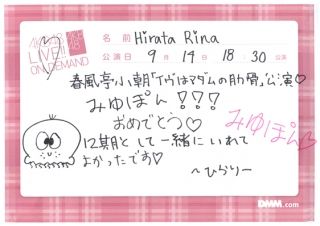 AKB48 LIVE!! ON DEMAND
AKB48
名前 Hirata Rina
公演日 9月14日 18:30公演
春風亭小朝「イヴはアダムの肋骨」公演♡
みゆぽん!!!
おめでとう♡
12期として一緒にいれて
よかったです♡
〜ひらりー
みゆぽん♡
DMM.com